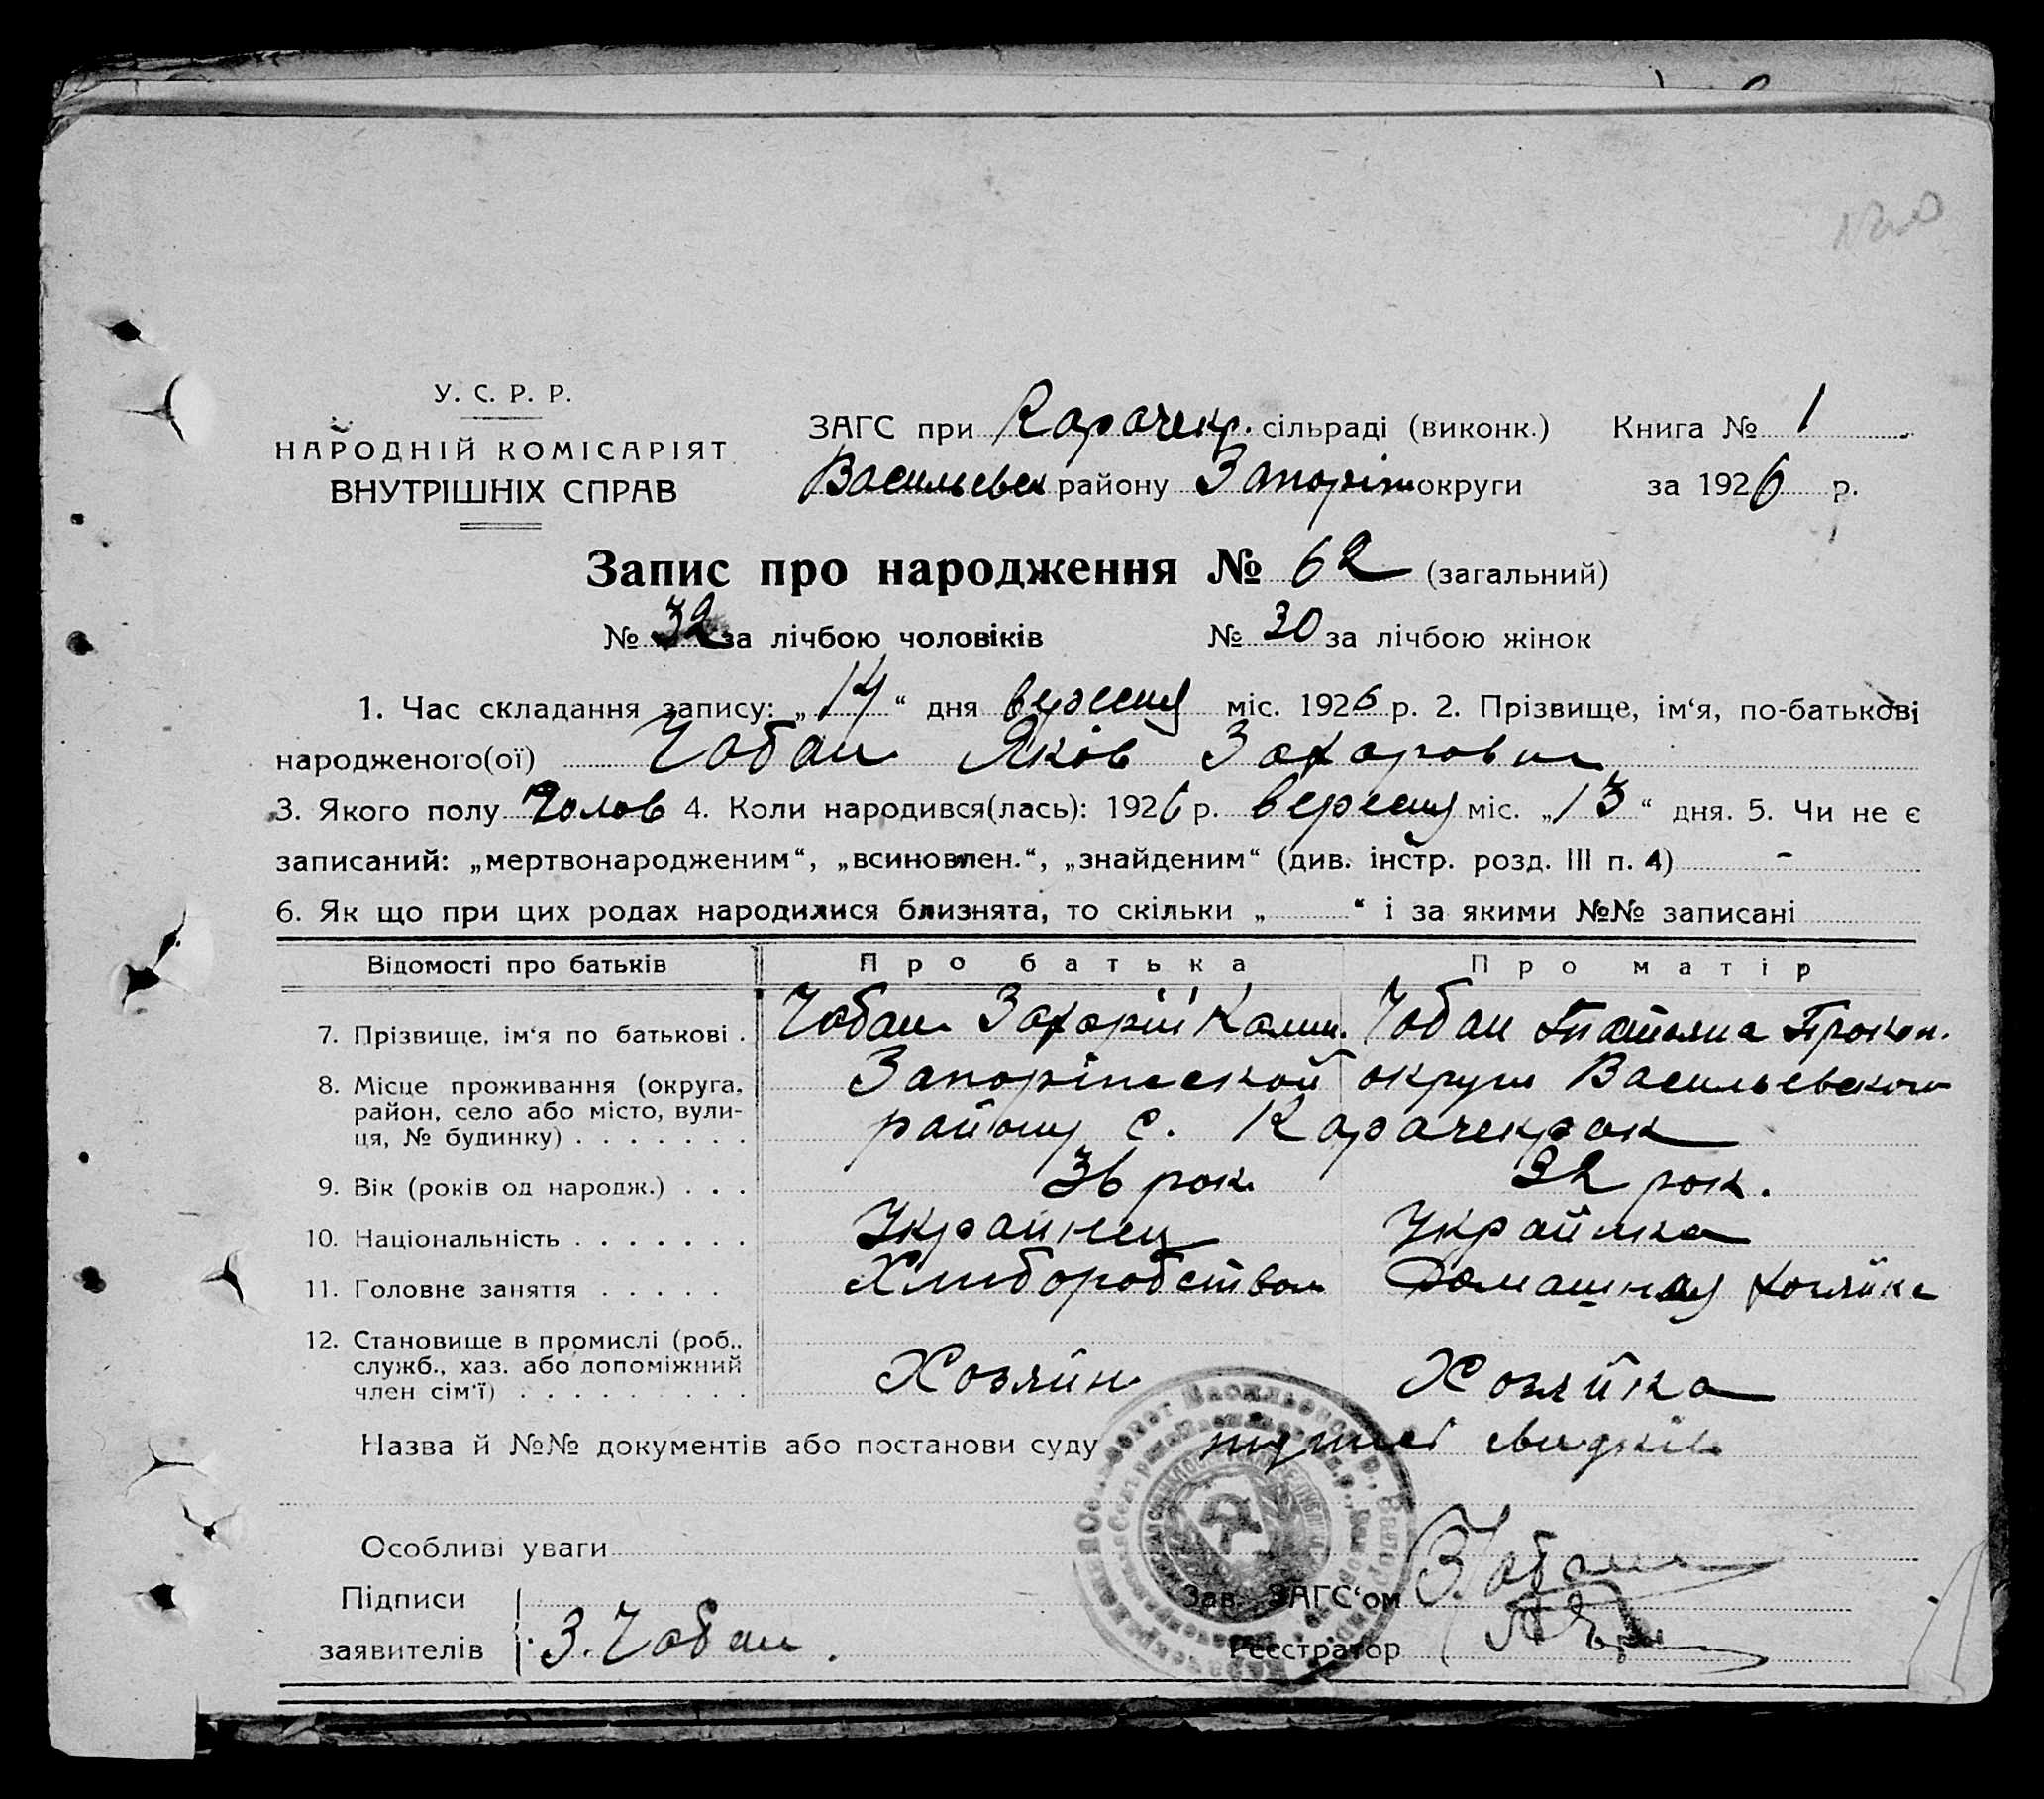 У. С. Р. Р.
НАРОДНІЙ КОМІСАРІЯТ
ВНУТРІШНІХ СПРАВ
ЗАГС при Карачекр. сільраді (виконк.) Книга № 1
Васильевск району Запоріж округи за 1926 р.
Запис про народження № 62 (загальний)
№ 32 за лічбою чоловіків № 30 за лічбою жінок
1. Час складання запису: „14“ дня вересня міс. 1926 р. 2. Прізвище, ім‘я, по-батькові
народженого(ої) Чабан Яків Захарович
3. Якого полу Чолов 4. Коли народився(лась): 1926 р. вересня міс. „13“ дня. 5. Чи не є
записаний: „мертвонародженим“, „всиновлен.“, „знайденим“ (див. інстр. розд. III п. 4) -
6. Як що при цих родах народилися близнята, то скільки „ “ і за якими №№ записані
Відомості про батьків Про батька Про матір
7. Прізвище, ім‘я по батькові . Чабан Захарій Чабан Татьяна Прокоп.
8. Місце проживання (округа, район, село або місто, вулиця, № будинку) Запоріжской округи Васильевского
району с. Карачекрак
9. Вік (років од народж.) . . . 36 рок. 32 рок.
10. Національність Украинец Украйнка
11. Головне заняття Хлиборобством Домашная хозяйка
12. Становище в промислі (роб., служб., хаз. або допоміжний член сім‘ї) Хозяйн Хозяйка
Назва й №№ документів або постанови суду свидків
Особливі уваги
Підписи
заявителів З. Чабан.
Зав. ЗАГС‘ом Чабан
Реєстратор